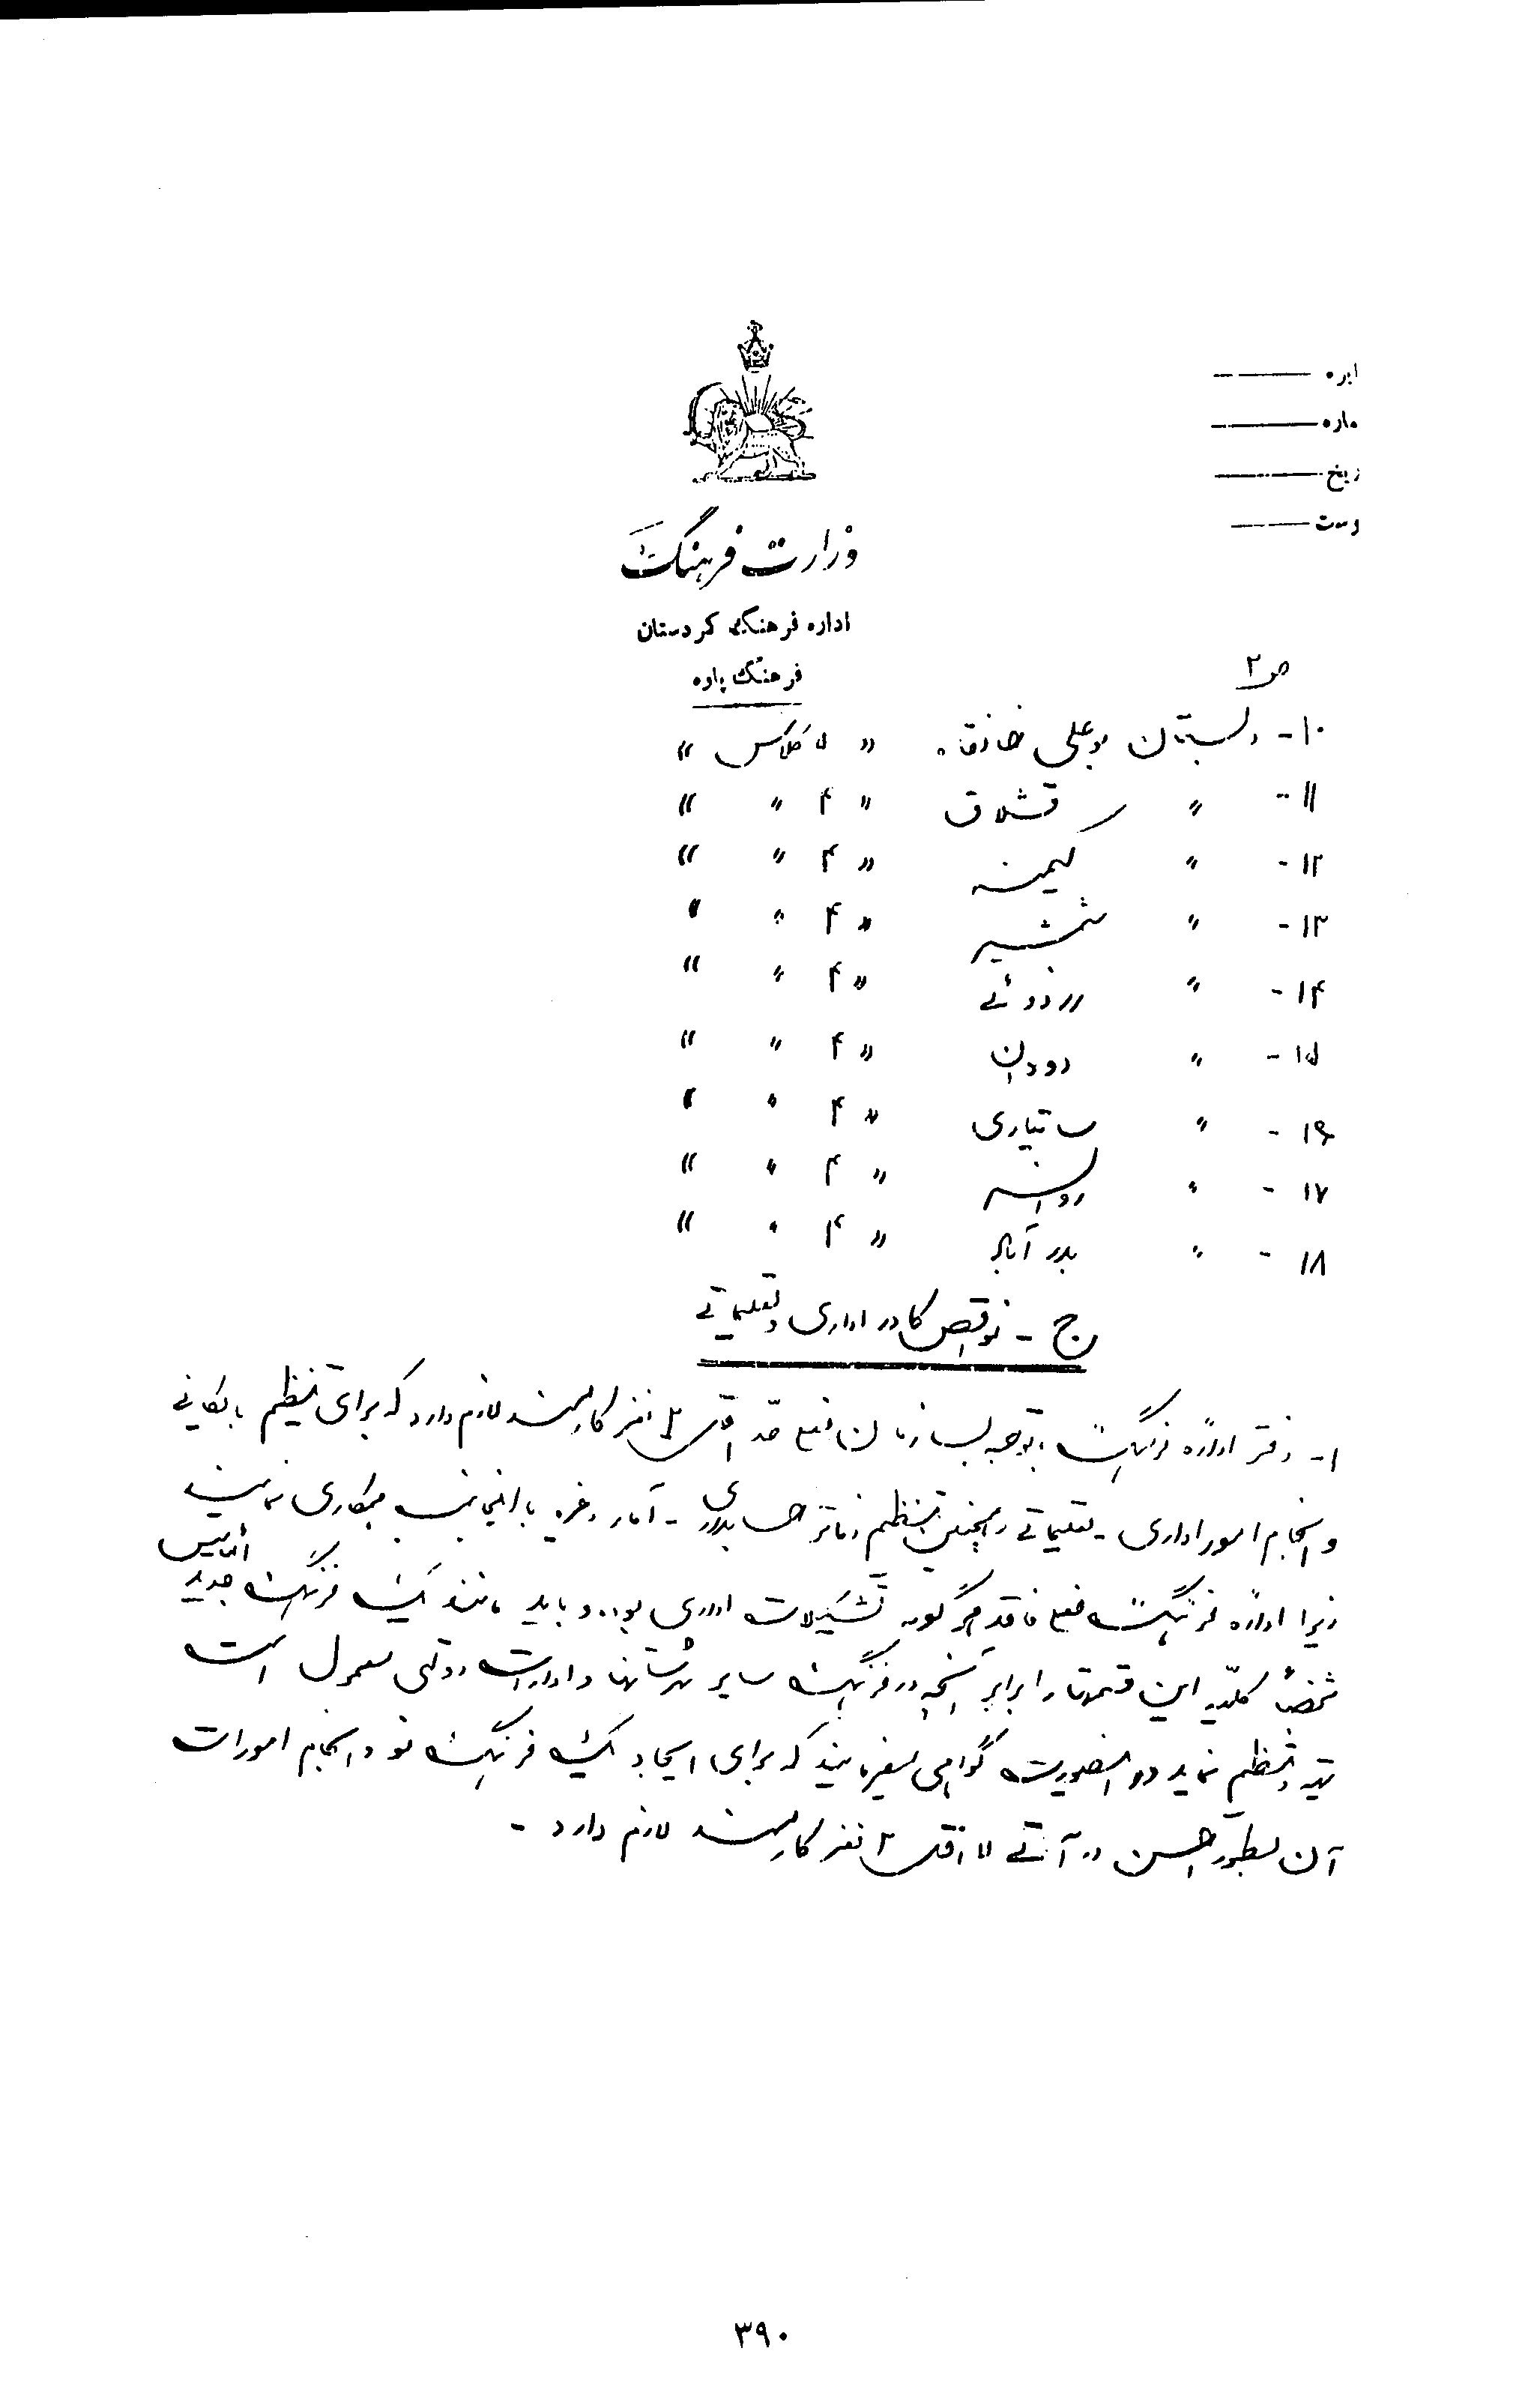 ایره
ماره
ریخ
وست
وزارت فرهنگ
اداره فرهنگ کردستان
فرهنگ پاوه
ص ۲
۱۰- دبستان بوعلی خانقاه « ۵ کلاس »
۱۱- » قشلاق « ۴ » »
۱۲- » کیمنه « ۴ » »
۱۳- » شمشیر « ۴ » »
۱۴- » « ۴ » »
۱۵- » دودان « ۴ » »
۱۶- » ساتیاری « ۴ » »
۱۷- » « ۴ » »
۱۸- » بدرآباد « ۴ » »
ج - نواقص کادر اداری و تعلیماتی
۱- دفتر اداره فرهنگ با توجه بسازمان فعلی حداقل ۲ نفر کارمند لازم دارد که برای تنظیم بایگانی
و انجام امور اداری - تعلیماتی و همچنین تنظیم دفاتر حسابداری - آمار وغیره با اینجانب همکاری نمایند
زیرا اداره فرهنگ فعلی فاقد هرگونه تشکیلات اداری بوده و باید مانند یک فرهنگ جدید التاسیس
شخصاً کلیه این قسمتها را برابر آنچه در فرهنگ سایر شهرستانها و ادارات دولتی معمول است
تهیه و تنظیم نماید در اینصورت گواهی میفرمایند که برای ایجاد یک فرهنگ نو و انجام امورات
آن بطور احسن در آتی لااقل ۲ نفر کارمند لازم دارد -
۳۹۰